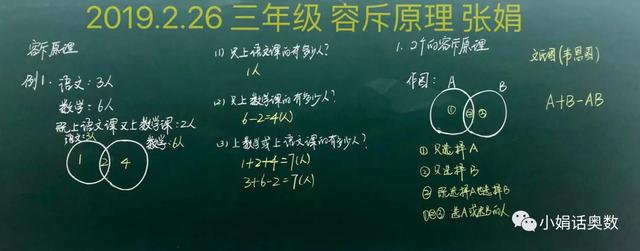 2019.2.26 三年级 容斥原理 张娟
容斥原理
例1. 语文：3人
数学：6人
既上语文课又上数学课：2人
语文：3人
数学：6人
1 2 4
(1) 只上语文课的有多少人？
1人
(2) 只上数学课的有多少人？
6-2=4(人)
(3) 上数学或上语文课的有多少人？
1+2+4=7(人)
3+6-2=7(人)
1. 2个的容斥原理
作图：
A B
① ② ③
① 只选择A
③ 只选择B
② 既选择A也选择B
①②③ 选A或选B的人
文氏图(韦恩图)
A+B-AB
小娟话奥数